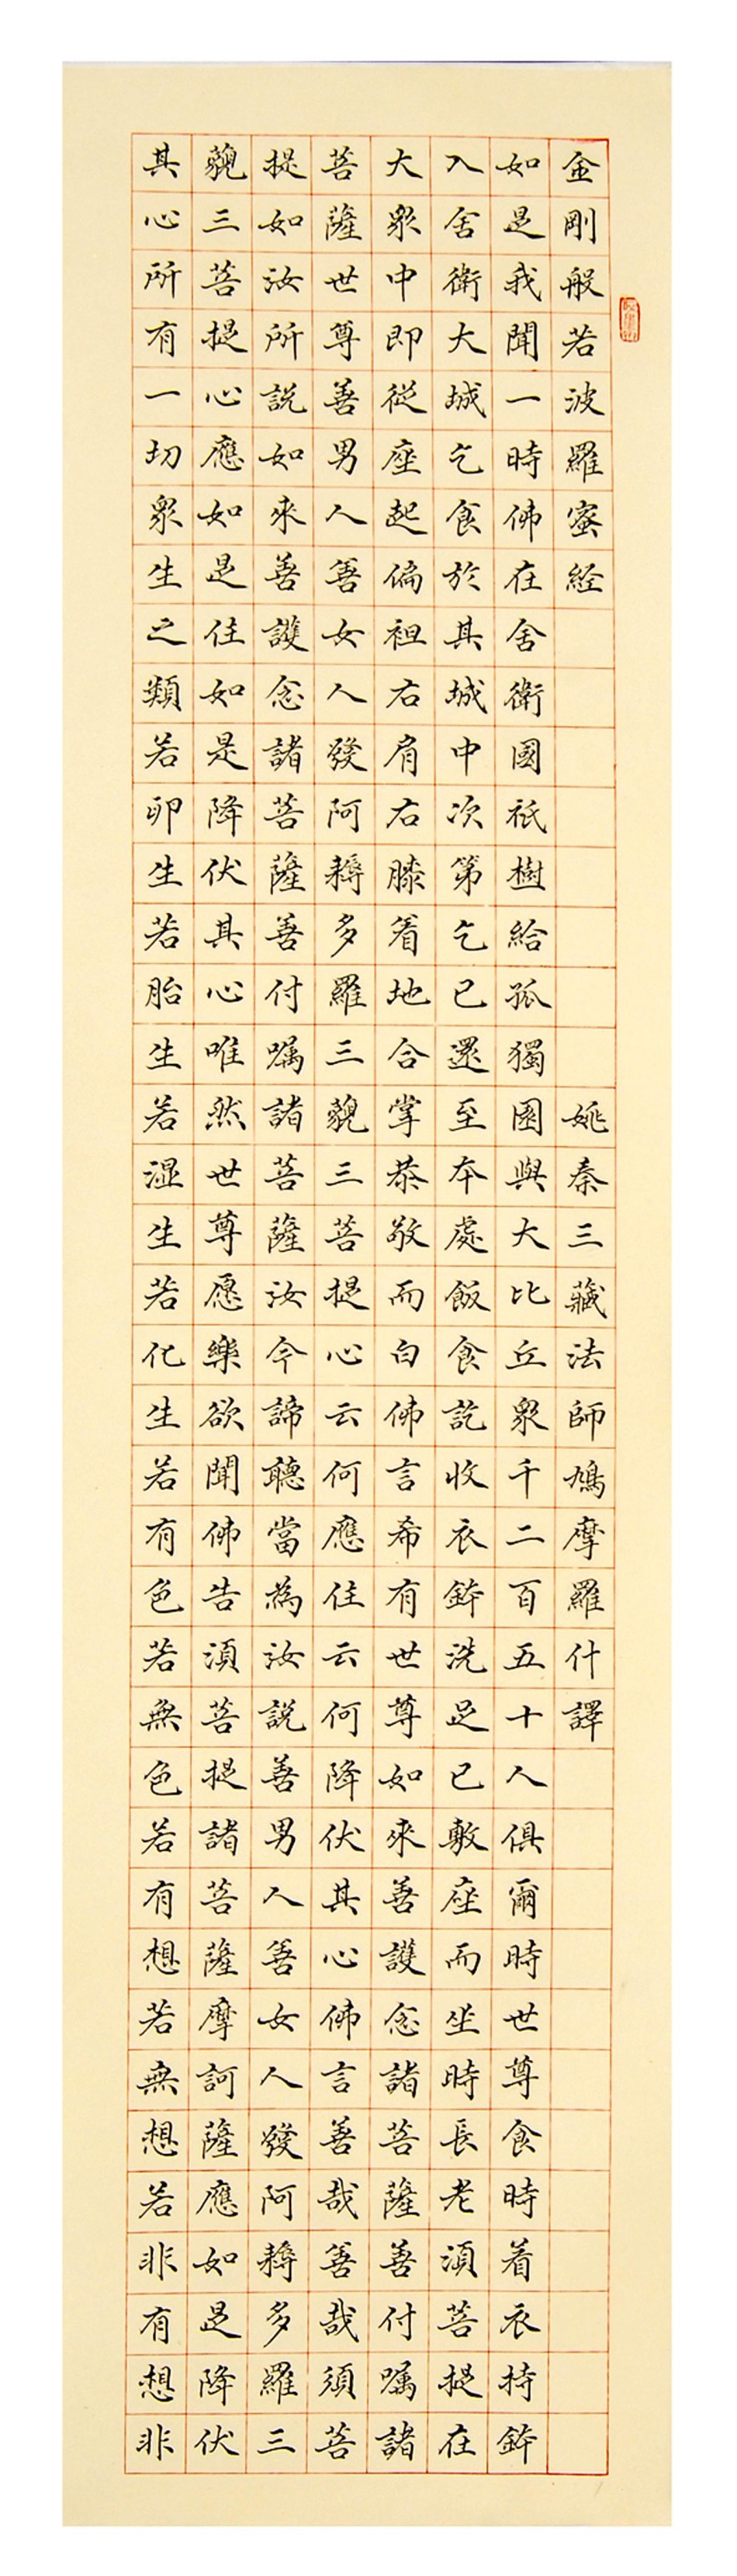 金剛般若波羅蜜経 姚秦三藏法師鳩摩羅什譯
如是我聞一時佛在舍衛國祇樹給孤獨園與大比丘眾千二百五十人俱爾時世尊食時着衣持鉢
入舍衛大城乞食於其城中次第乞已還至本處飯食訖收衣鉢洗足已敷座而坐時長老須菩提在
大眾中即從座起偏袒右肩右膝着地合掌恭敬而白佛言希有世尊如來善護念諸菩薩善付嘱諸
菩薩世尊善男人善女人發阿耨多羅三藐三菩提心云何應住云何降伏其心佛言善哉善哉須菩
提如汝所說如來善護念諸菩薩善付嘱諸菩薩汝今諦聽當為汝說善男人善女人發阿耨多羅三
藐三菩提心應如是住如是降伏其心唯然世尊愿樂欲聞佛告須菩提諸菩薩摩訶薩應如是降伏
其心所有一切眾生之類若卵生若胎生若湿生若化生若有色若無色若有想若無想若非有想非